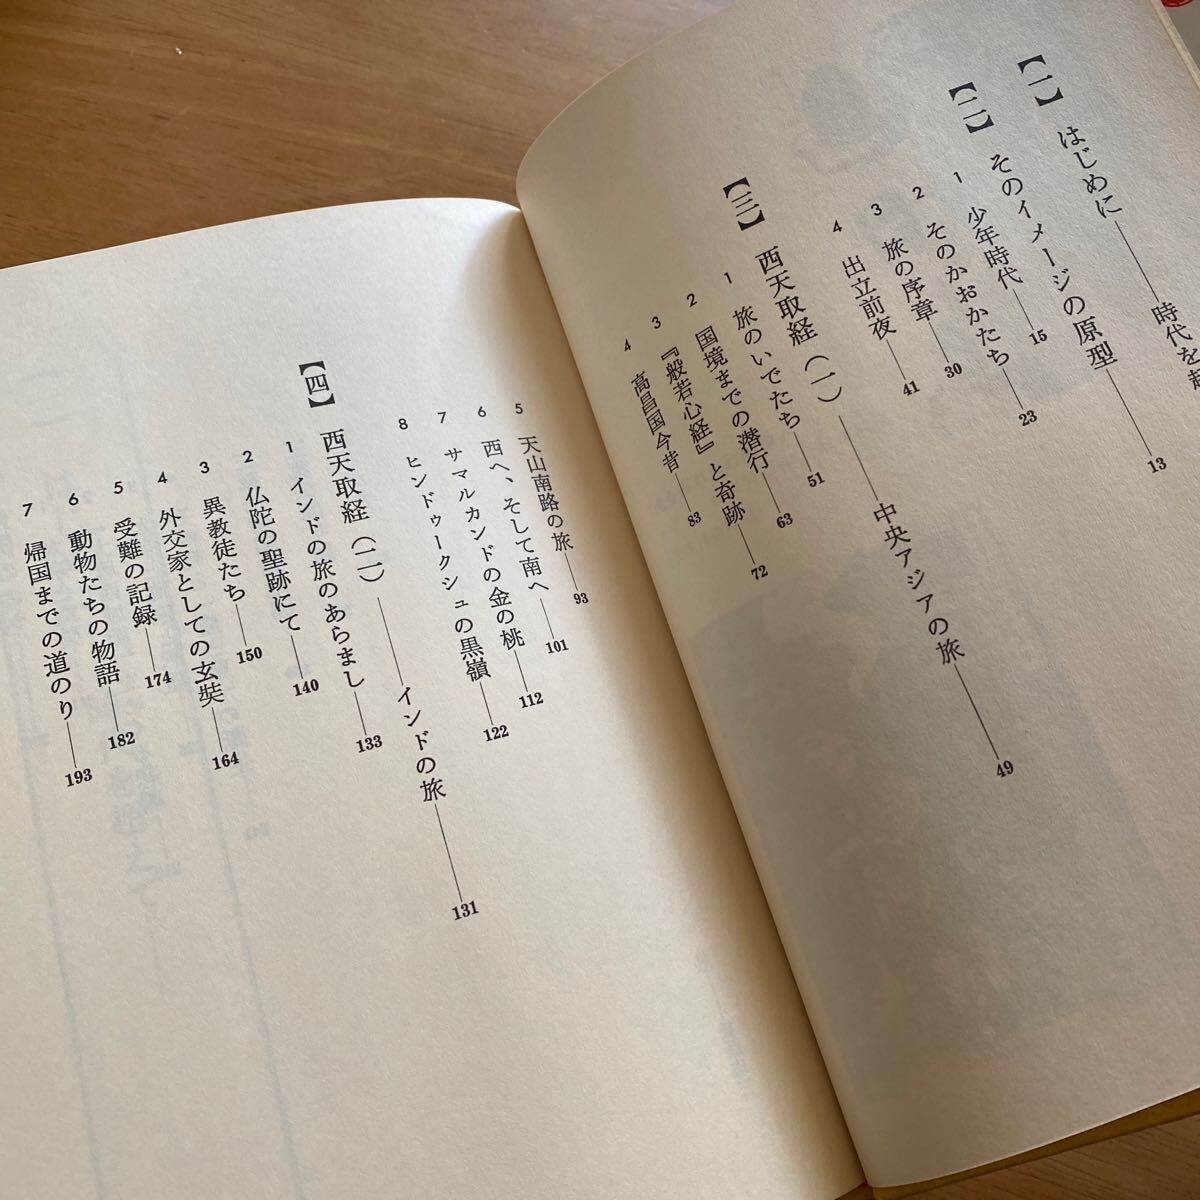 【一】 はじめに――時代を
【二】 そのイメージの原型――13
1 少年時代――15
2 そのかおかたち――23
3 旅の序章――30
4 出立前夜――41
【三】 西天取経（一）――中央アジアの旅――49
1 旅のいでたち――51
2 国境までの潜行――63
3 『般若心経』と奇跡――72
4 高昌国今昔――83
5 天山南路の旅――93
6 西へ、そして南へ――101
7 サマルカンドの金の桃――112
8 ヒンドゥークシュの黒嶺――122
【四】 西天取経（二）――インドの旅――131
1 インドの旅のあらまし――133
2 仏陀の聖跡にて――140
3 異教徒たち――150
4 外交家としての玄奘――164
5 受難の記録――174
6 動物たちの物語――182
7 帰国までの道のり――193